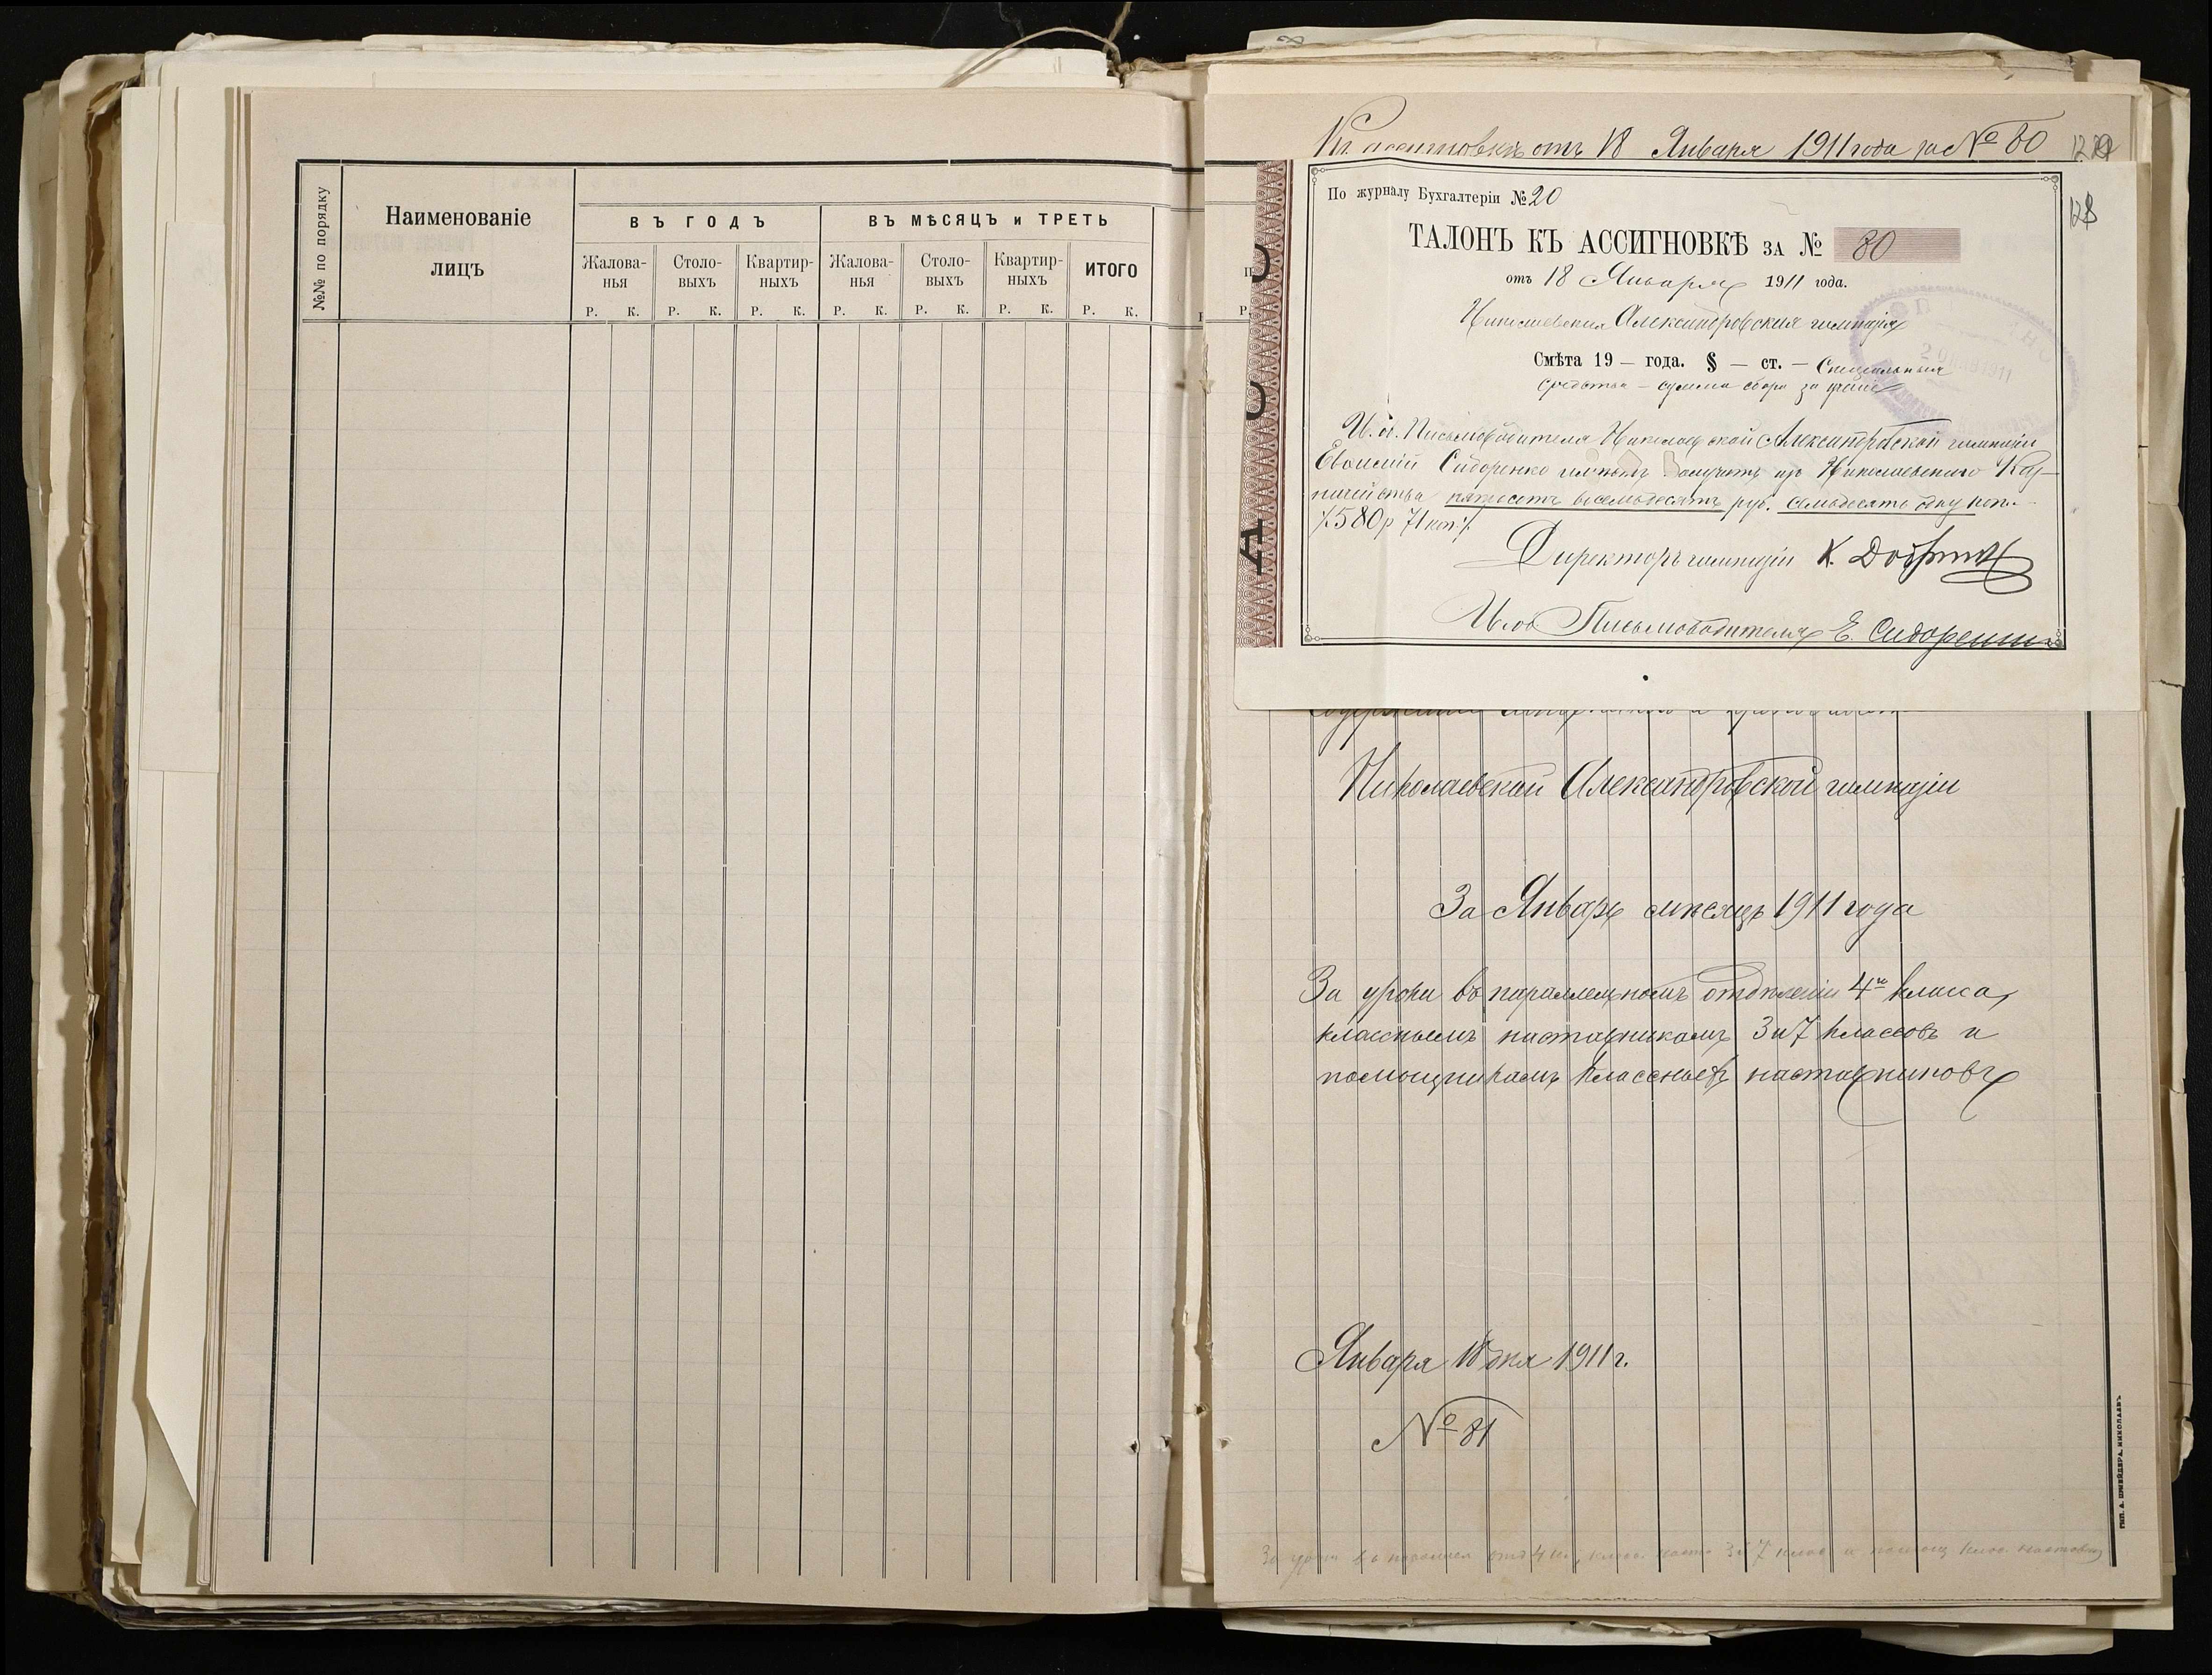 №№ по порядку
Наименованіе
лицъ
ВЪ ГОДЪ
ВЪ МѢСЯЦЪ и ТРЕТЬ
Жалова-
нья
Столо-
выхъ
Квартир-
ныхъ
Жалова-
нья
Столо-
выхъ
Квартир-
ныхъ
ИТОГО
Р. К. Р. К. Р. К. Р. К. Р. К. Р. К. Р. К.
Къ ассигновкѣ отъ 18 Января 1911 года за № 80
По журналу Бухгалтеріи № 20
ТАЛОНЪ КЪ АССИГНОВКѢ ЗА № 80
отъ 18 Января 1911 года.
Николаевская Александровская гимназія
Смѣта 19 — года. § — ст. — Спеціальныя
средства — сумма сбора за ученіе
И. д. Письмоводителя Николаевской Александровской гимназіи
Евфимій Сидоренко имѣетъ получить изъ Николаевскаго Каз-
начейства пятьсотъ восемьдесятъ руб. семьдесятъ одну коп.
/:580 р 71 коп:/.
Директоръ гимназіи К. Добрин
И. об. Письмоводителя Е. Сидоренко
128
Николаевской Александровской гимназіи
За Январь мѣсяцъ 1911 года
За уроки въ параллельномъ отдѣленіи 4го класса,
класснымъ наставникамъ 3 и 7 классовъ и
помощникамъ классныхъ наставниковъ
Января 18 дня 1911 г.
№ 81
За уроки въ параллел отд 4 кл., класс. наст. 3 и 7 класс. и помощ. клас. наставн
ТИП. А. ШНЕЙДЕРА, НИКОЛАЕВЪ